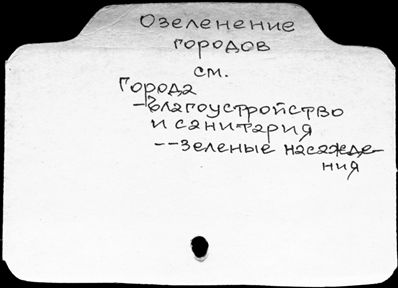 Озеленение
городов
см.
Города
-Благоустройство
и санитария
--Зеленые насажде-
ния